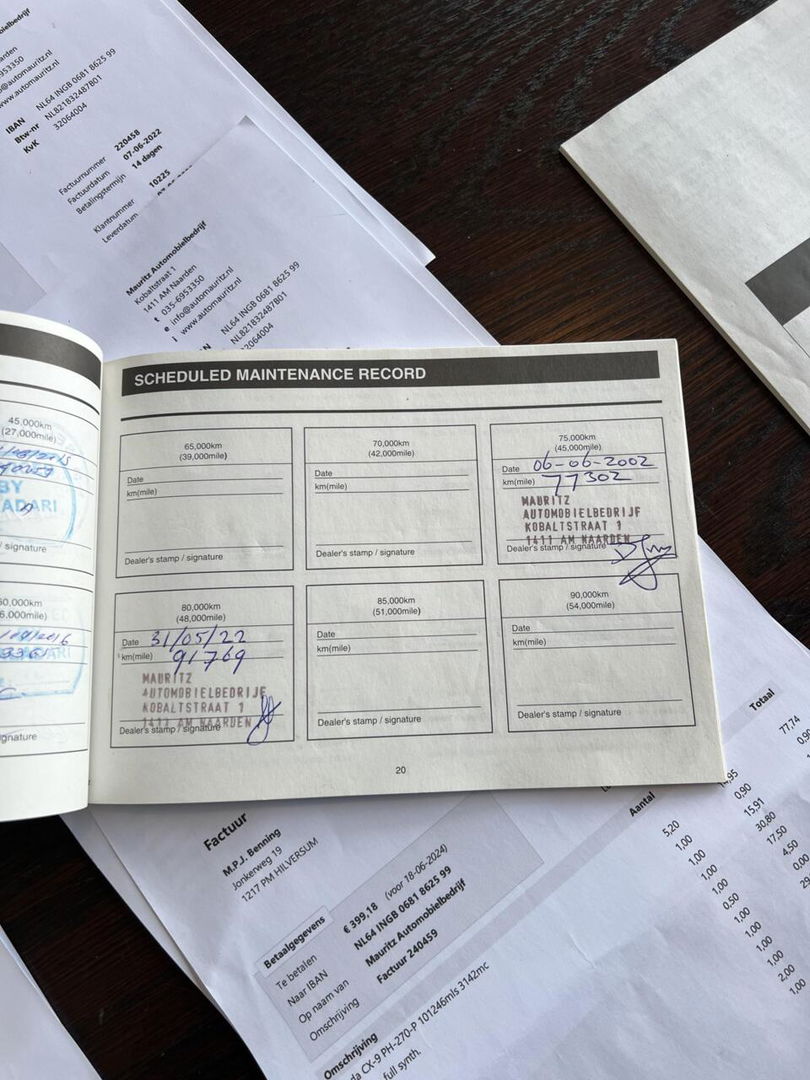 IBAN NL64 INGB 0681 8625 99
Btw-nr NL821832487B01
KvK 32064004
Factuurnummer 220458
Factuurdatum 07-06-2022
Betalingstermijn 14 dagen
Klantnummer 10225
Leverdatum
Mauritz Automobielbedrijf
Kobaltstraat 1
1411 AM Naarden
t 035-6953350
e info@automauritz.nl
i www.automauritz.nl
NL64 INGB 0681 8625 99
NL821832487B01
SCHEDULED MAINTENANCE RECORD
45,000km
(27,000mile)
BY
ADARI
/ signature
65,000km
(39,000mile)
Date
km(mile)
Dealer's stamp / signature
70,000km
(42,000mile)
Date
km(mile)
Dealer's stamp / signature
75,000km
(45,000mile)
Date 06-06-2002
km(mile) 77302
MAURITZ
AUTOMOBIELBEDRIJF
KOBALTSTRAAT 1
1411 AM NAARDEN
Dealer's stamp / signature
80,000km
(48,000mile)
Date 31/05/22
km(mile) 91769
MAURITZ
AUTOMOBIELBEDRIJF
KOBALTSTRAAT 1
1411 AM NAARDEN
Dealer's stamp / signature
85,000km
(51,000mile)
Date
km(mile)
Dealer's stamp / signature
90,000km
(54,000mile)
Date
km(mile)
Dealer's stamp / signature
20
Factuur
M.P.J. Benning
Jonkerweg 19
1217 PM HILVERSUM
Betaalgegevens
Te betalen € 399,18 (voor 18-06-2024)
Naar IBAN NL64 INGB 0681 8625 99
Op naam van Mauritz Automobielbedrijf
Omschrijving Factuur 240459
Omschrijving
CX-9 PH-270-P 101246mls 3142mc
full synth.
Aantal
Totaal
5,20
1,00
1,00
1,00
0,50
1,00
1,00
1,00
2,00
1,00
0,90
15,91
30,80
17,50
4,50
0,00
77,74